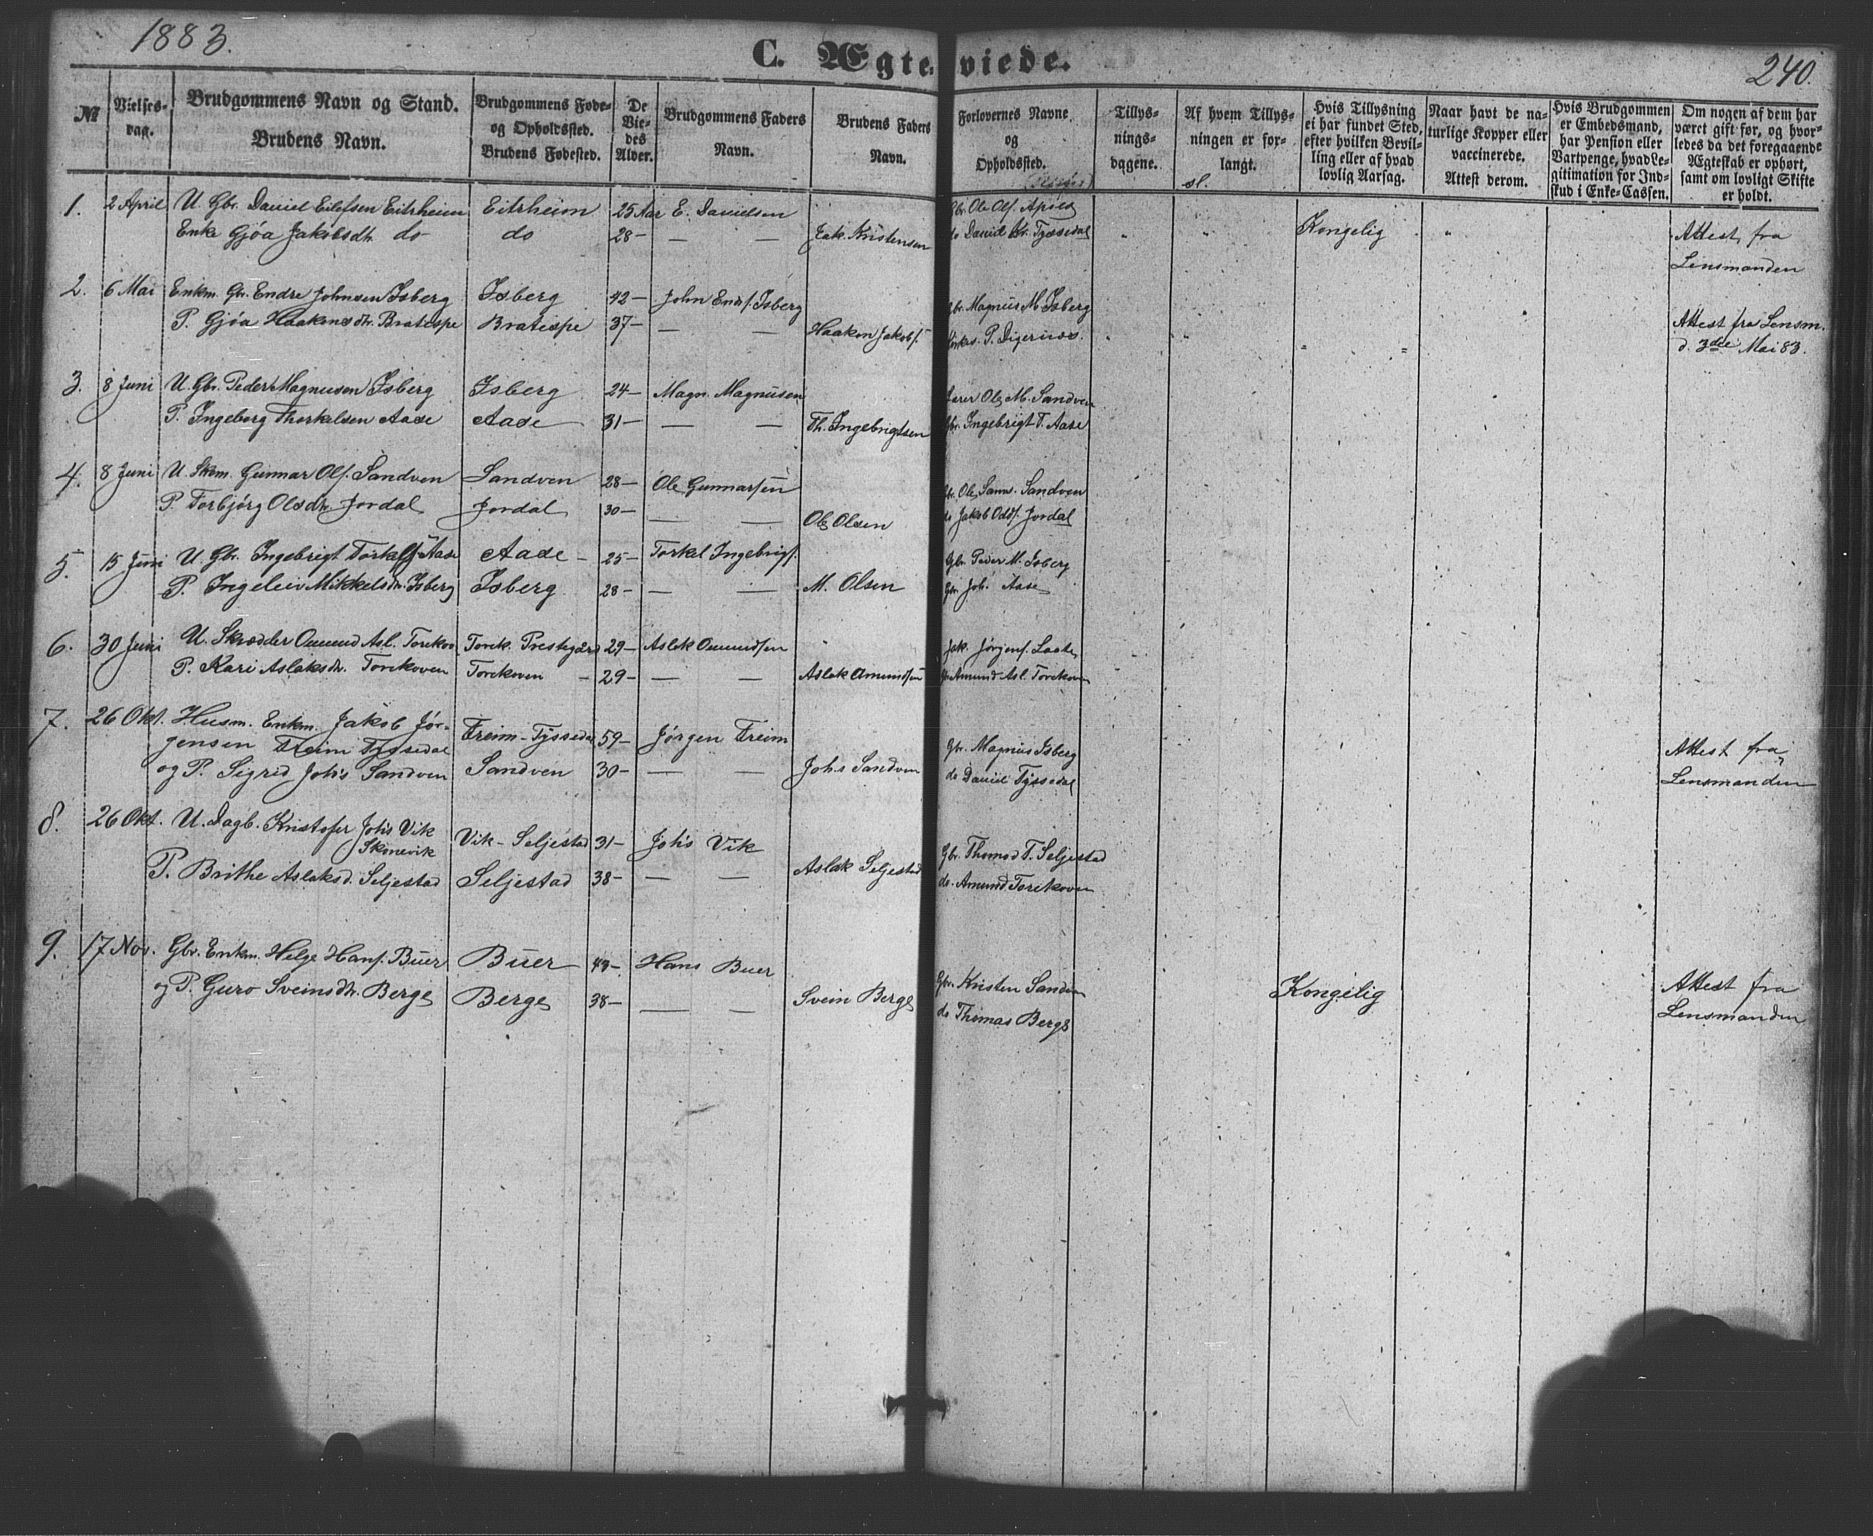 1883.
C. Ægteviede.
240.
№
Vielses-
dag.
Brudgommens Navn og Stand.
Brudens Navn.
Brudgommens Føde-
og Opholdssted.
Brudens Fødested.
De
Vie-
des
Alder.
Brudgommens Faders
Navn.
Brudens Faders
Navn.
Forlovernes Navne
og
Opholdssted.
Tillys-
nings-
dagene.
Af hvem Tillys-
ningen er for-
langt.
Hvis Tillysning
ei har fundet Sted,
efter hvilken Bevil-
ling eller af hvad
lovlig Aarsag.
Naar havt de na-
turlige Kopper eller
vaccinerede.
Attest derom.
Hvis Brudgommen
er Embedsmand,
har Pension eller
Vartpenge, hvad Le-
gitimation for Ind-
skud i Enke-Cassen.
Om nogen af dem har
været gift før, og hvor-
ledes da det foregaaende
Ægteskab er ophørt,
samt om lovligt Skifte
er holdt.
1. 2 April U. Gbr. Daniel Eilefsen Eitrheim Eitrheim 25 Aar E. Danielsen Gbr. Ole Ols. Apold
Enke Gjøa Jakobsdtr. do do 28 — — — Jak. Kristensen do Daniel Kr. Tyssedal " " Kongelig " Attest fra
Lensmanden
2. 6 Mai Enkm. Gbr. Endre Johnsen Isberg Isberg 42 — John Ends. Isberg Gbr. Magnus M. Isberg
P. Gjøa Haakonsdtr. Bratespe Bratespe 37 — — — Haakon Jakobs. P. Digernes " " " " Attest fra Lensm.
d. 3die Mai 83.
3. 8 Juni U. Gbr. Peder Magnusen Isberg Isberg 24 — Magn. Magnusen Lærer Ole M. Sandven
P. Ingeborg Thorkelsen Aase Aase 31 — — — Th. Ingebrigtsen Gbr. Ingebrigt T. Aase
4. 8 Juni U. Skm. Gunnar Ols. Sandven Sandven 28 — Ole Gunnarsen Gbr. Ole Sandven
P. Torbjørg Olsdtr. Jordal Jordal 30 — — — Ole Olsen do Jakob Odds. Jordal
5. 15 Juni U. Gbr. Ingebrigt Torkels. Aase Aase — 25 — Torkel Ingebrigs. Gbr. Peder M. Isberg
P. Ingeleiv Mikkelsdtr. Isberg Isberg 28 — — — M. Olsen Gbr. Joh. Aase
6. 30 Juni U. Skrædder Omund Asl. Torekov Torek. Prestegård 29 — Aslak Omundsen Jak. Jørgens. Laate
P. Kari Aslaksdtr. Torekoven Torekoven — 29 — — — Aslak Amundsen Gbr. Amund Asl. Torekoven
7. 26 Okt. Husm. Enkm. Jakob Jør-
gensen Freim Tyssedal Freim - Tyssedal 59 — Jørgen Freim Gbr. Magnus Isberg Attest fra
og P. Sigrid Johs Sandven Sandven 30 — — — Johs Sandven do Daniel Tyssedal Lensmanden
8. 26 Okt. U. Dagb. Kristofer Johs Vik
Skonevik Vik - Seljestad 31 — Johs Vik Gbr. Thomas T. Seljestad
P. Brithe Aslaksd. Seljestad Seljestad 38 — — — Aslak Seljestad do. Amund Torekoven
9. 17 Nov. Gbr. Enkm. Helge Hans. Buer Buer 49 — Hans Buer Gbr. Kristen Sandven
og P. Guro Sveinsdtr. Berge Berge 38 — — — Svein Berge do Thomas Berge Kongelig Attest fra
Lensmanden